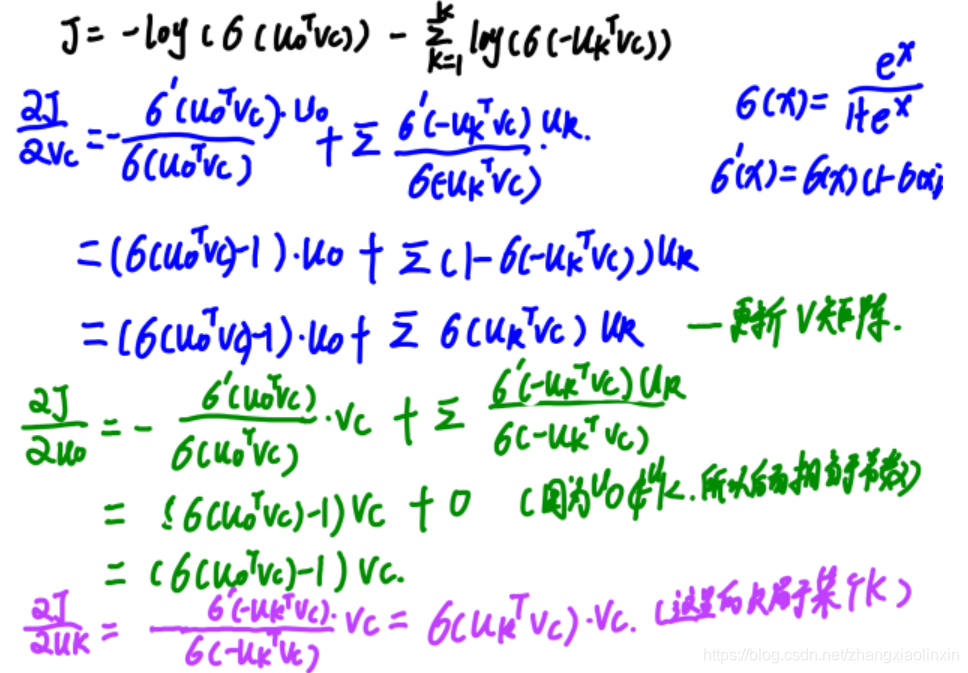 J = -log(σ(u₀ᵀvc)) - Σ_{k=1}^{k} log(σ(-u_Kᵀvc))
σ(x) = e^x / (1+e^x)
∂J/∂vc = - σ'(u₀ᵀvc)·u₀ / σ(u₀ᵀvc) + Σ σ'(-u_Kᵀvc) / σ(-u_Kᵀvc) · u_K.
σ'(x) = σ(x)(1-σ(x))
= (σ(u₀ᵀvc)-1)·u₀ + Σ(1-σ(-u_Kᵀvc))u_K
= (σ(u₀ᵀvc)-1)·u₀ + Σ σ(u_Kᵀvc) u_K — 更新V矩阵.
∂J/∂u₀ = - σ'(u₀ᵀvc) / σ(u₀ᵀvc) · vc + Σ σ'(-u_Kᵀvc)u_K / σ(-u_Kᵀvc)
= (σ(u₀ᵀvc)-1)vc + 0 (因为u₀∉u_K.所以后面相当于常数)
= (σ(u₀ᵀvc)-1)vc.
∂J/∂u_K = σ'(-u_Kᵀvc)· / σ(-u_Kᵀvc) · vc = σ(u_Kᵀvc)·vc. (这里的K属于某个K)
https://blog.csdn.net/zhangxiaolinxin